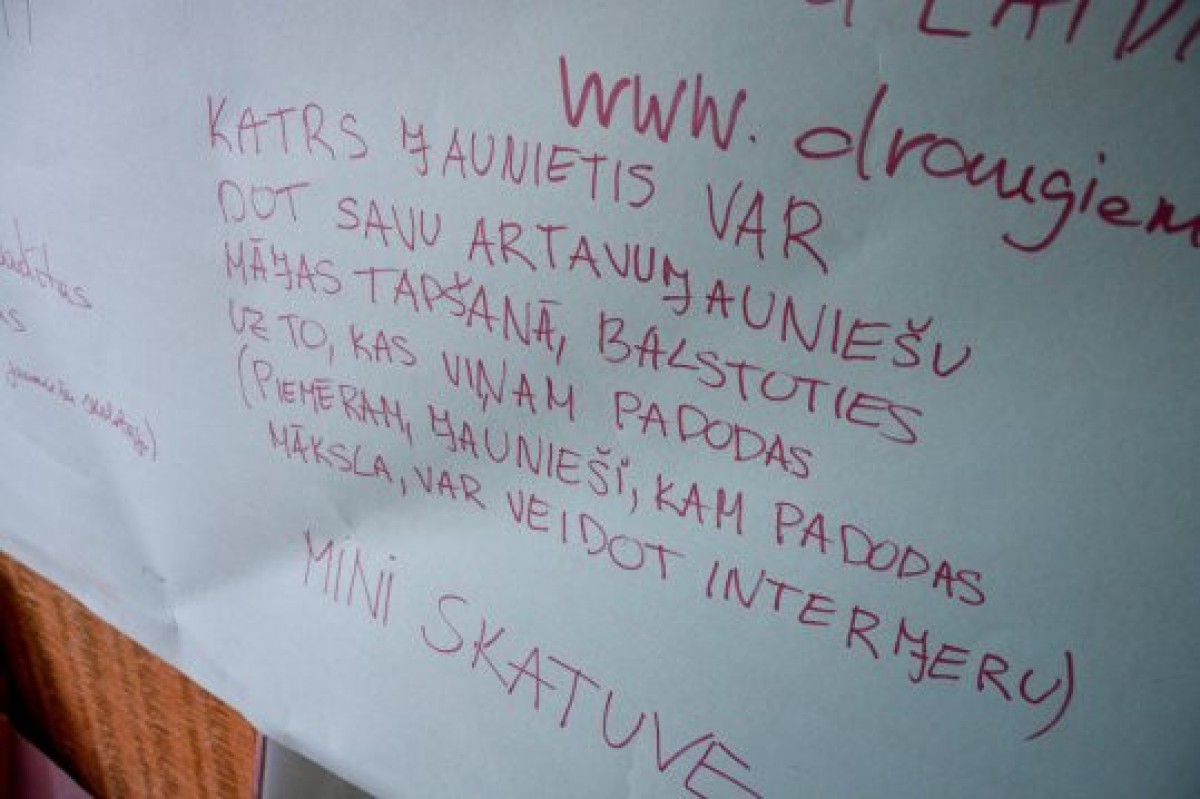 www.draugiem
KATRS JAUNIETIS VAR
DOT SAVU ARTAVU JAUNIEŠU
MĀJAS TAPŠANĀ, BALSTOTIES
UZ TO, KAS VIŅAM PADODAS
(PIEMĒRAM, JAUNIEŠI, KAM PADODAS
MĀKSLA, VAR VEIDOT INTERJERU)
MINI SKATUVE